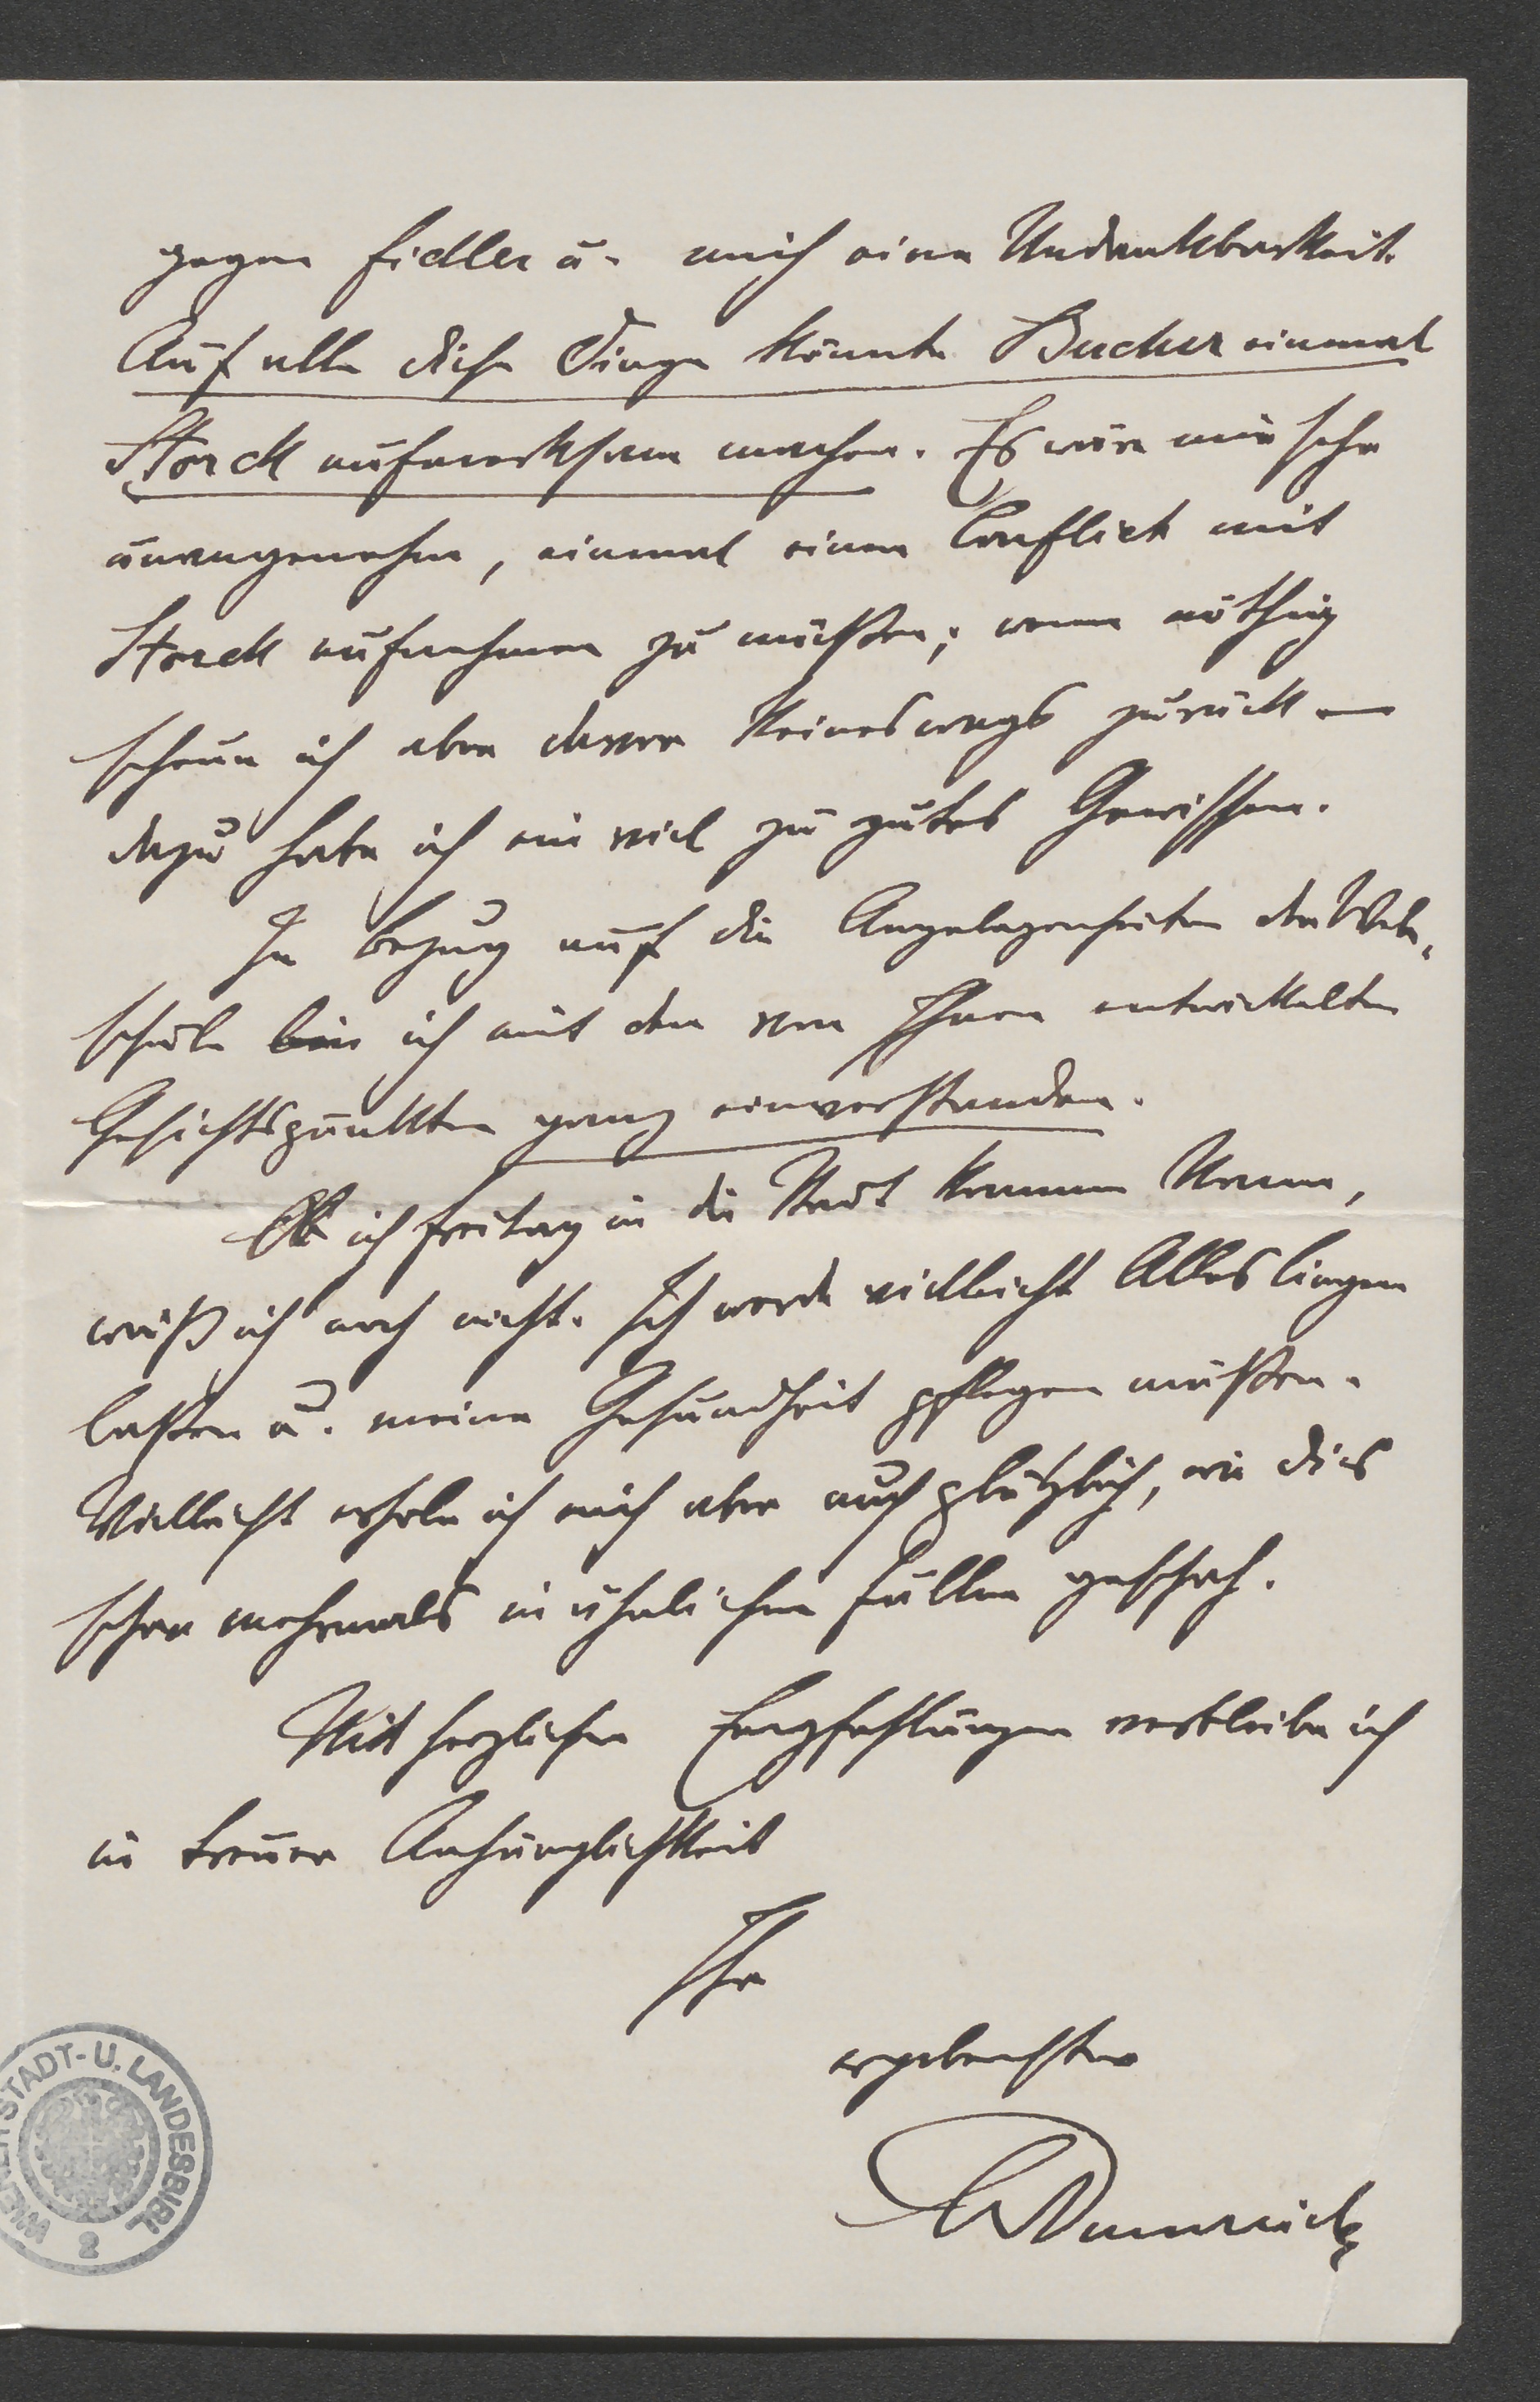 gegen Fidler u. mich eine Undankbarkeit.
Auf alle diese Dinge könnte Bucher einmal
Storck aufmerksam machen. Es wäre mir sehr
unangenehm, einmal einen Conflict mit
Storck aufnehmen zu müßen; wenn nöthig
scheue ich aber davor keineswegs zurück —
dazu habe ich ein viel zu gutes Gewissen.
In Bezug auf die Angelegenheiten der Web-
schule bin ich mit den von Ihnen entwickelten
Gesichtspunkten ganz einverstanden.
Ob ich Freitag in die Stadt kommen kann,
weiß ich noch nicht. Ich werde vielleicht Alles liegen
laßen u. meine Gesundheit pflegen müßen.
Vielleicht erhole ich mich aber auch plötzlich, wie dies
schon mehrmals in ähnlichen Fällen geschah.
Mit herzlichen Empfehlungen verbleibe ich
in treuer Anhänglichkeit
Ihr
ergebenster
Dumreicher
WIENER STADT- U. LANDESBIBL.
2